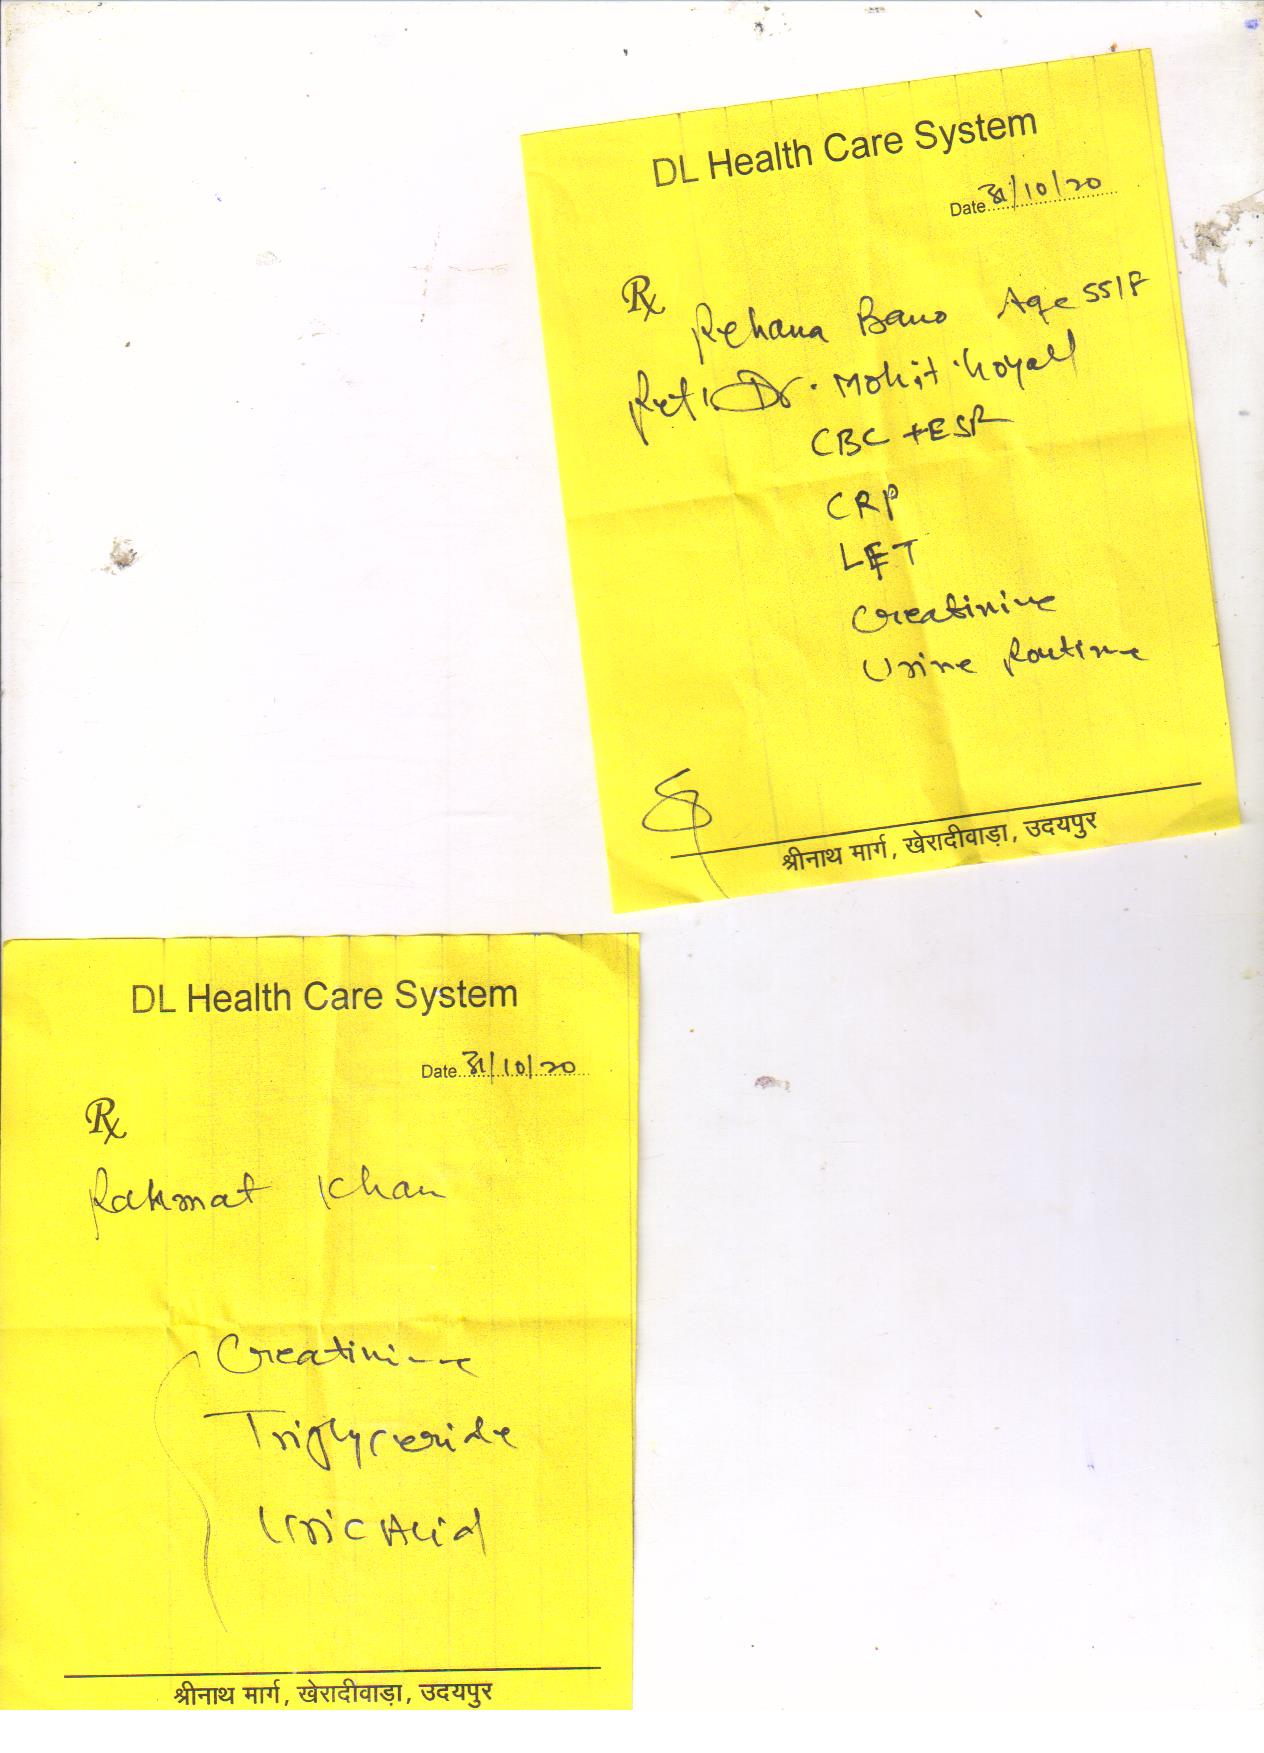 DL Health Care System
Date 31/10/20
Rx
Rehana Bano Age 55/F
Ref: Dr. Mohit
CBC + ESR
CRP
LFT
Creatinine
Urine Routine
श्रीनाथ मार्ग, खेरादीवाड़ा, उदयपुर
DL Health Care System
Date 31/10/20
Rx
Rahmat Khan
Creatinine
Triglyceride
Uric Acid
श्रीनाथ मार्ग, खेरादीवाड़ा, उदयपुर